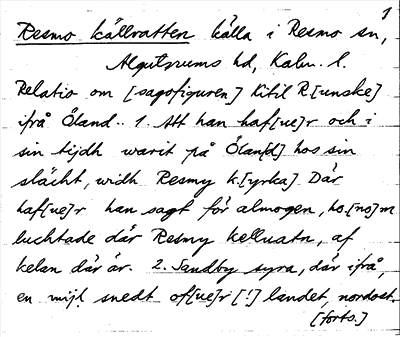 1
Resmo källvatten källa i Resmo sn,
Algutsrums hd, Kalm. l.
Relatio om [sagofiguren] Kitil R.[unske]
ifrå Öland.. 1. Att han haf[ue]r och i
sin tijdh warit på Ölan[d] hos sin
slächt, widh Resmy k.[yrka] Där
haf[ue]r han sagt för almogen, ho.[no]m
luchtade där Resmy kelluatn, af
kelan där är. 2. Sandby syra, där ifrå,
en mijl snedt of[ue]r [!] landet nordost.
[forts.]